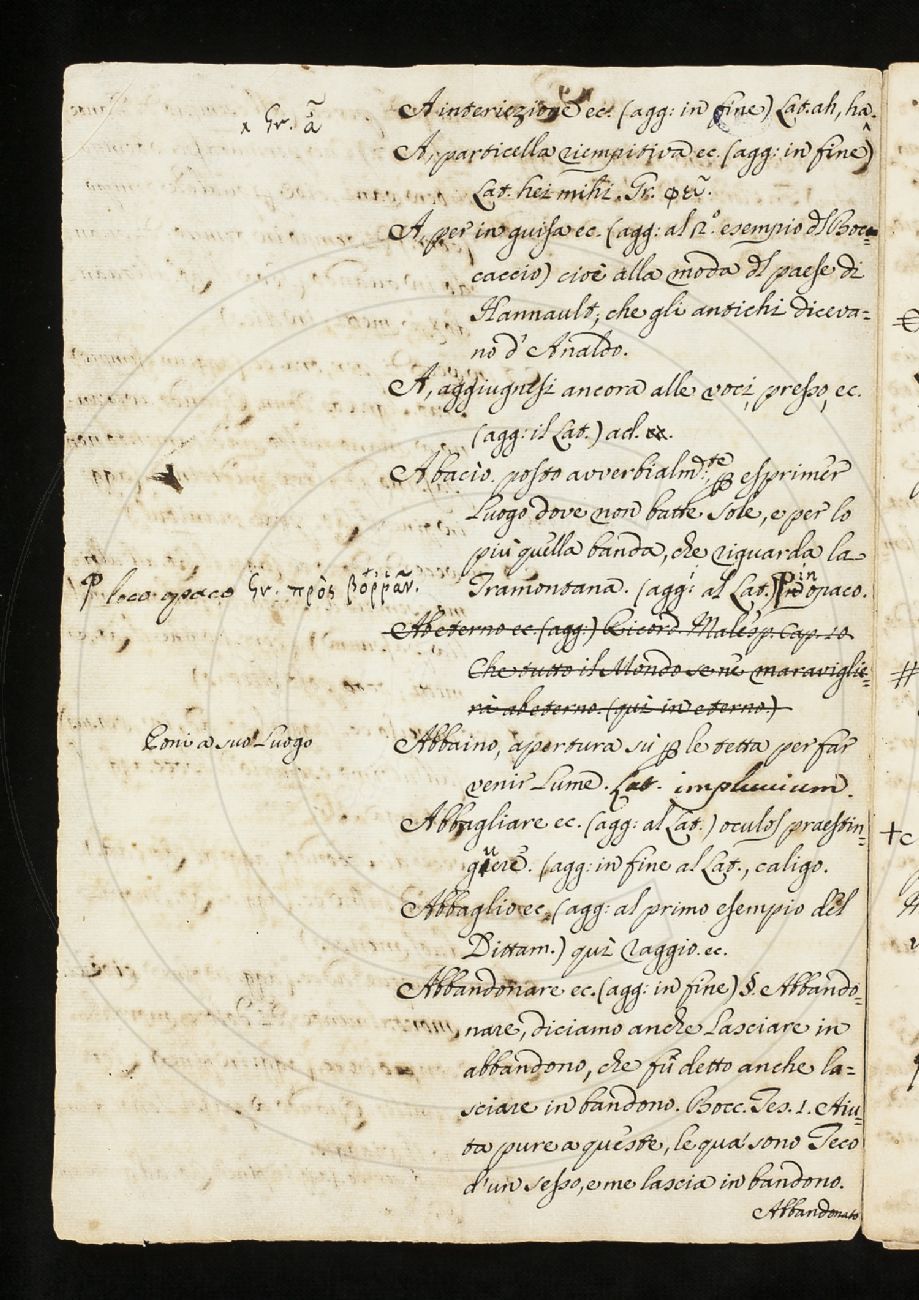 x Gr. ἆ
A interiezione ec. (agg: in fine) Lat. ah, ha.
A, particella riempitiva ec. (agg: in fine)
Lat. hei mihi. Gr. φεῦ.
A, per in guisa ec. (agg: al 2.º esempio dl Boc=
caccio) cioè alla moda dl paese di
Hannault, che gli antichi diceva=
no d'Analdo.
A, aggiugnesi ancora alle voci, presso, ec.
(agg: il Lat.) ad.
Abacìo. posto avverbialm:te p esprimer
Luogo dove non batte Sole, e per lo
più quella banda, che riguarda la
Tramontana. (agg: al Lat.) in opaco.
loco opaco Gr. πρὸς βορρᾶν.
Abeterno ec. (agg:) Ricord. Malesp. Cap. 10
Che tutto il Mondo se ne maraviglie=
rà abeterno. (qui in eterno)
Poni a suo Luogo
Abbaino, apertura sù p le tetta per far
venir Lume. Lat. impluvium.
Abbagliare ec. (agg: al Lat.) oculos praestin=
guere. (agg: in fine al Lat., caligo.
Abbaglio ec. (agg: al primo esempio del
Dittam.) qui raggio. ec.
Abbandonare ec. (agg: in fine) §. Abbando=
nare, diciamo anche Lasciare in
abbandono, che fù detto anche la=
sciare in bandono. Bocc. Tes. 1. Aiu=
ta pure a queste, le qua' sono Teco
d'un sesso, e me lascia in bandono.
Abbandonato